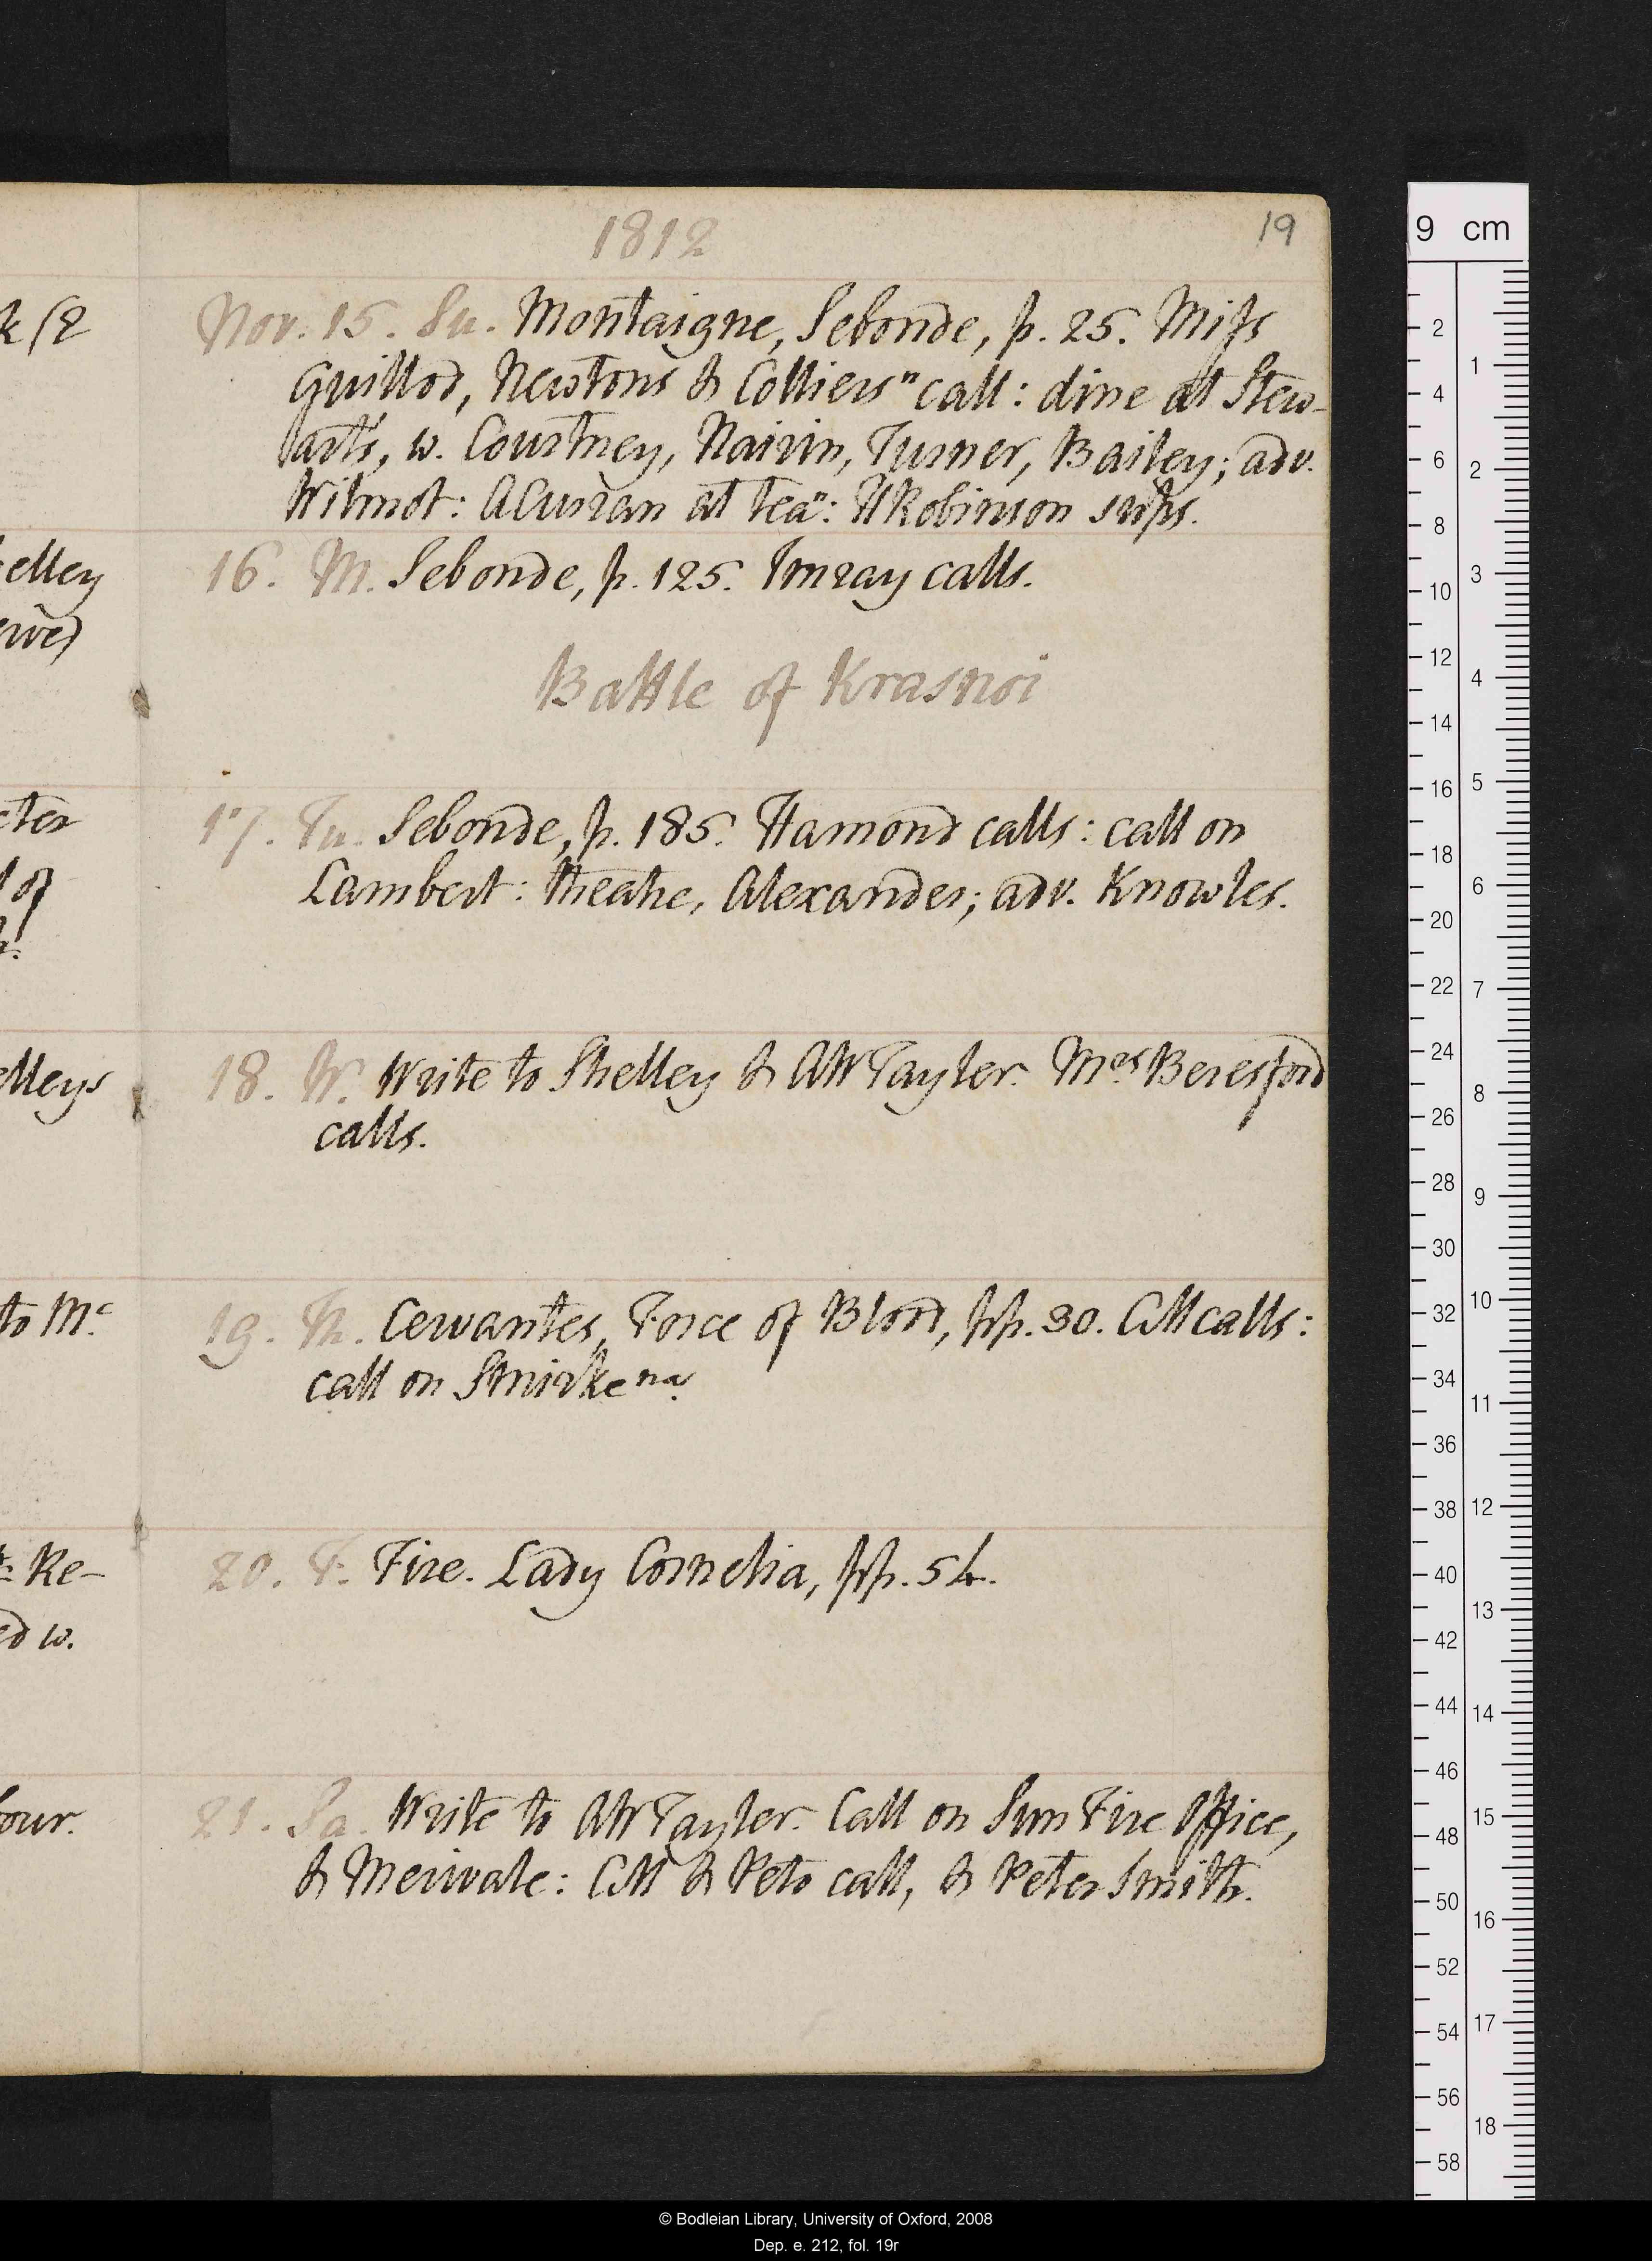 1812
19
Nov. 15. Su. Montaigne, Sebonde, p. 25. Miſs
Guillod, Newtons & Colliers" call: dine at Stew-
art's, w. Courtney, Nairin, Turner, Bailey; adv.
Wilmot: ACurran at tea": HRobinson sups.
16. M. Sebonde, p. 125. Imray calls.
Battle of Krasnoi
17. Tu. Sebonde, p. 185. Hamond calls: call on
Lambert: theatre, Alexander; adv. Knowles.
18. W. Write to Shelley & AWTayler. Mrs Beresford
calls.
19. Th. Cervantes, Force of Blood, pp. 30. CM calls:
call on Smirke na.
20. F. Fire. Lady Cornelia, pp. 54.
21. Sa. Write to AWTayler. Call on Sun Fire Office,
& Merivale: CM & Peto call, & Peter Smith.
elley
eived
cter
l of
elleys
to Mc
Re-
ed w.
our.
9 cm
2
4
6
8
10
12
14
16
18
20
22
24
26
28
30
32
34
36
38
40
42
44
46
48
50
52
54
56
58
1
2
3
4
5
6
7
8
9
10
11
12
13
14
15
16
17
18
© Bodleian Library, University of Oxford, 2008
Dep. e. 212, fol. 19r